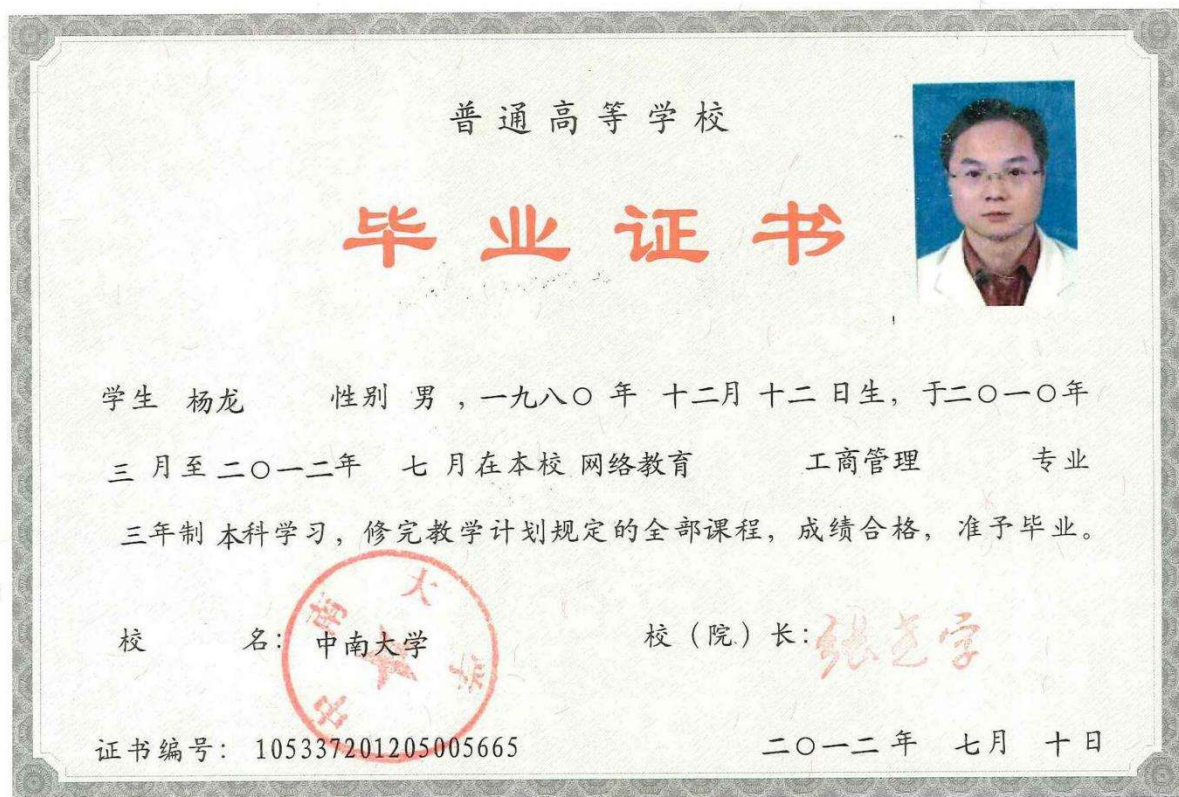 普通高等学校
毕业证书
学生 杨龙 性别 男 ，一九八〇年 十二月 十二 日生，于二〇一〇年
三 月至 二〇一二年 七 月在本校 网络教育 工商管理 专业
三年制 本科学习，修完教学计划规定的全部课程，成绩合格，准予毕业。
校 名：中南大学 校（院）长：张尧学
中南大学
证书编号：105337201205005665 二〇一二年 七月 十日